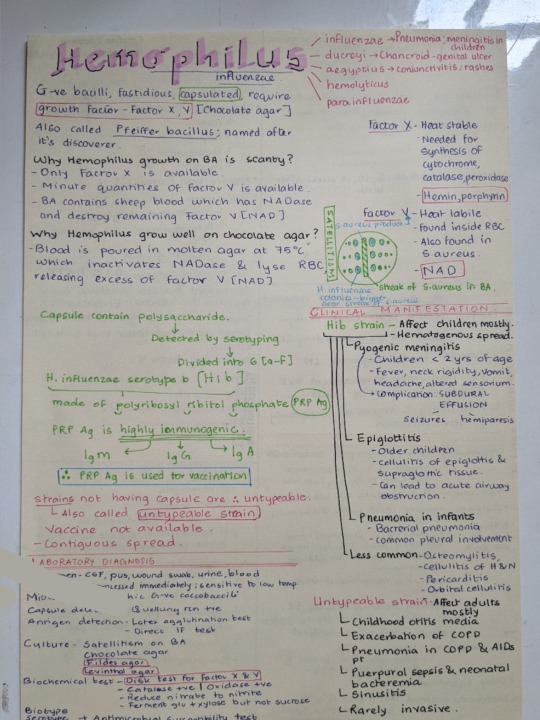 Hemophilus
influenzae
influenzae → Pneumonia; meningitis in children
ducreyi → Chancroid - genital ulcer
aegyptius → conjunctivitis; rashes
hemolyticus
parainfluenzae
G-ve bacilli, fastidious, capsulated, require
growth factor - Factor X, V [Chocolate agar]
Also called Pfeiffer bacillus; named after
it's discoverer.
Why Hemophilus growth on BA is scanty?
- Only Factor X is available
- Minute quantities of factor V is available.
- BA contains sheep blood which has NADase
and destroy remaining Factor V [NAD]
Why Hemophilus grow well on chocolate agar?
- Blood is poured in molten agar at 75°C
which inactivates NADase & lyse RBC
releasing excess of factor V [NAD]
Factor X - Heat stable
- Needed for
synthesis of
cytochrome,
catalase, peroxidase
- Hemin, porphyrin
Factor V - Heat labile
- found inside RBC
- Also found in
S. aureus.
- NAD
SATELLITISM
S. aureus produce
streak of S. aureus in BA.
H. influenzae
colonies - bigger
near streak of S. aureus
Capsule contain polysaccharide.
Detected by serotyping
Divided into 6 [a-f]
H. influenzae serotype b [Hib]
made of polyribosyl ribitol phosphate PRP Ag
PRP Ag is highly immunogenic.
IgM IgG IgA
∴ PRP Ag is used for vaccination
strains not having capsule are ∴ untypeable.
Also called untypeable strain
Vaccine not available.
- Contiguous spread.
CLINICAL MANIFESTATION.
Hib strain - Affect children mostly.
- Hematogenous spread.
Pyogenic meningitis
- Children < 2 yrs of age
- Fever, neck rigidity, vomit,
headache, altered sensorium.
Complication: SUBDURAL
EFFUSION
Seizures hemiparesis
Epiglottitis
- Older children
- cellulitis of epiglottis &
supraglottic tissue.
- Can lead to acute airway
obstruction.
Pneumonia in infants
- Bacterial pneumonia
- common pleural involvement
Less common - Osteomyelitis,
- cellulitis of H&N
- Pericarditis
- Orbital cellulitis
Untypeable strain - Affect adults
mostly
Childhood otitis media
Exacerbation of COPD
Pneumonia in COPD & AIDs
pt
Puerpural sepsis & neonatal
bacteremia
Sinusitis
Rarely invasive.
ABORATORY DIAGNOSIS
en - CSF, pus, wound swab, urine, blood
cessed immediately; sensitive to low temp
hic G-ve coccobacilli
Quellung rxn +ve
Antigen detection - Latex agglutination test
- Direct IF test
Culture - Satellitism on BA
Chocolate agar
Fildes agar
Levinthal agar
Biochemical test - Disk test for factor X & V
- Catalase +ve | Oxidase +ve
- Reduce nitrate to nitrite
- Ferment glu + xylose but not sucrose
Biotype
serotype + Antimicrobial susceptibility test